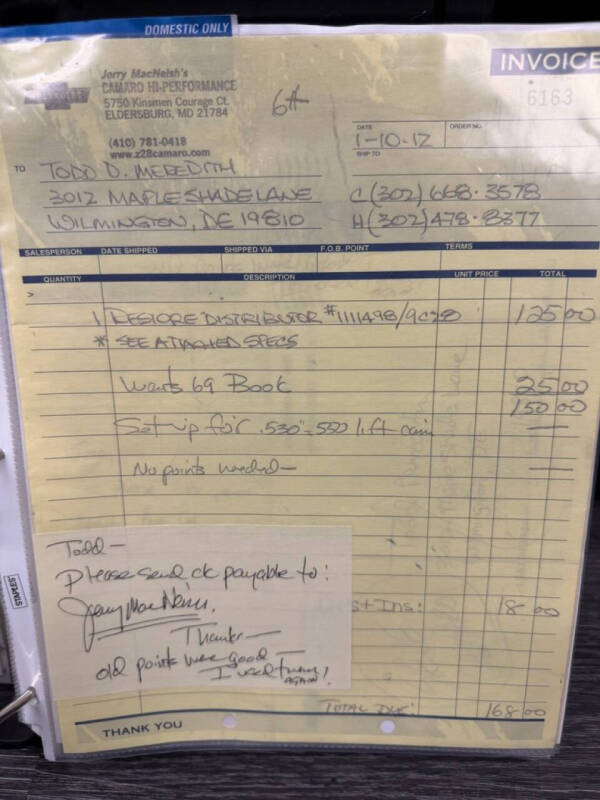 DOMESTIC ONLY
INVOICE
6163
Jerry MacNeish's
CAMARO HI-PERFORMANCE
5750 Kinsmen Courage Ct.
ELDERSBURG, MD 21784
(410) 781-0418
www.z28camaro.com
6A
DATE
1-10-12
ORDER NO.
SHIP TO
TO TODD D. MEREDITH
3012 MAPLE SHADE LANE
WILMINGTON, DE 19810
C (302) 668-3578
H (302) 478-8377
SALESPERSON DATE SHIPPED SHIPPED VIA F.O.B. POINT TERMS
QUANTITY DESCRIPTION UNIT PRICE TOTAL
1 RESTORE DISTRIBUTOR #1111498/9C28 125 00
* SEE ATTACHED SPECS
Wants 69 Book 25 00
150 00
Set up for .530"-.550 lift cam —
No points needed — —
Todd —
Please send ck payable to:
Jerry MacNeish.
Thanks —
old points were good —
I used them
AGAIN!
+ Ins: 18 00
TOTAL DUE: 168 00
THANK YOU
STAPLES